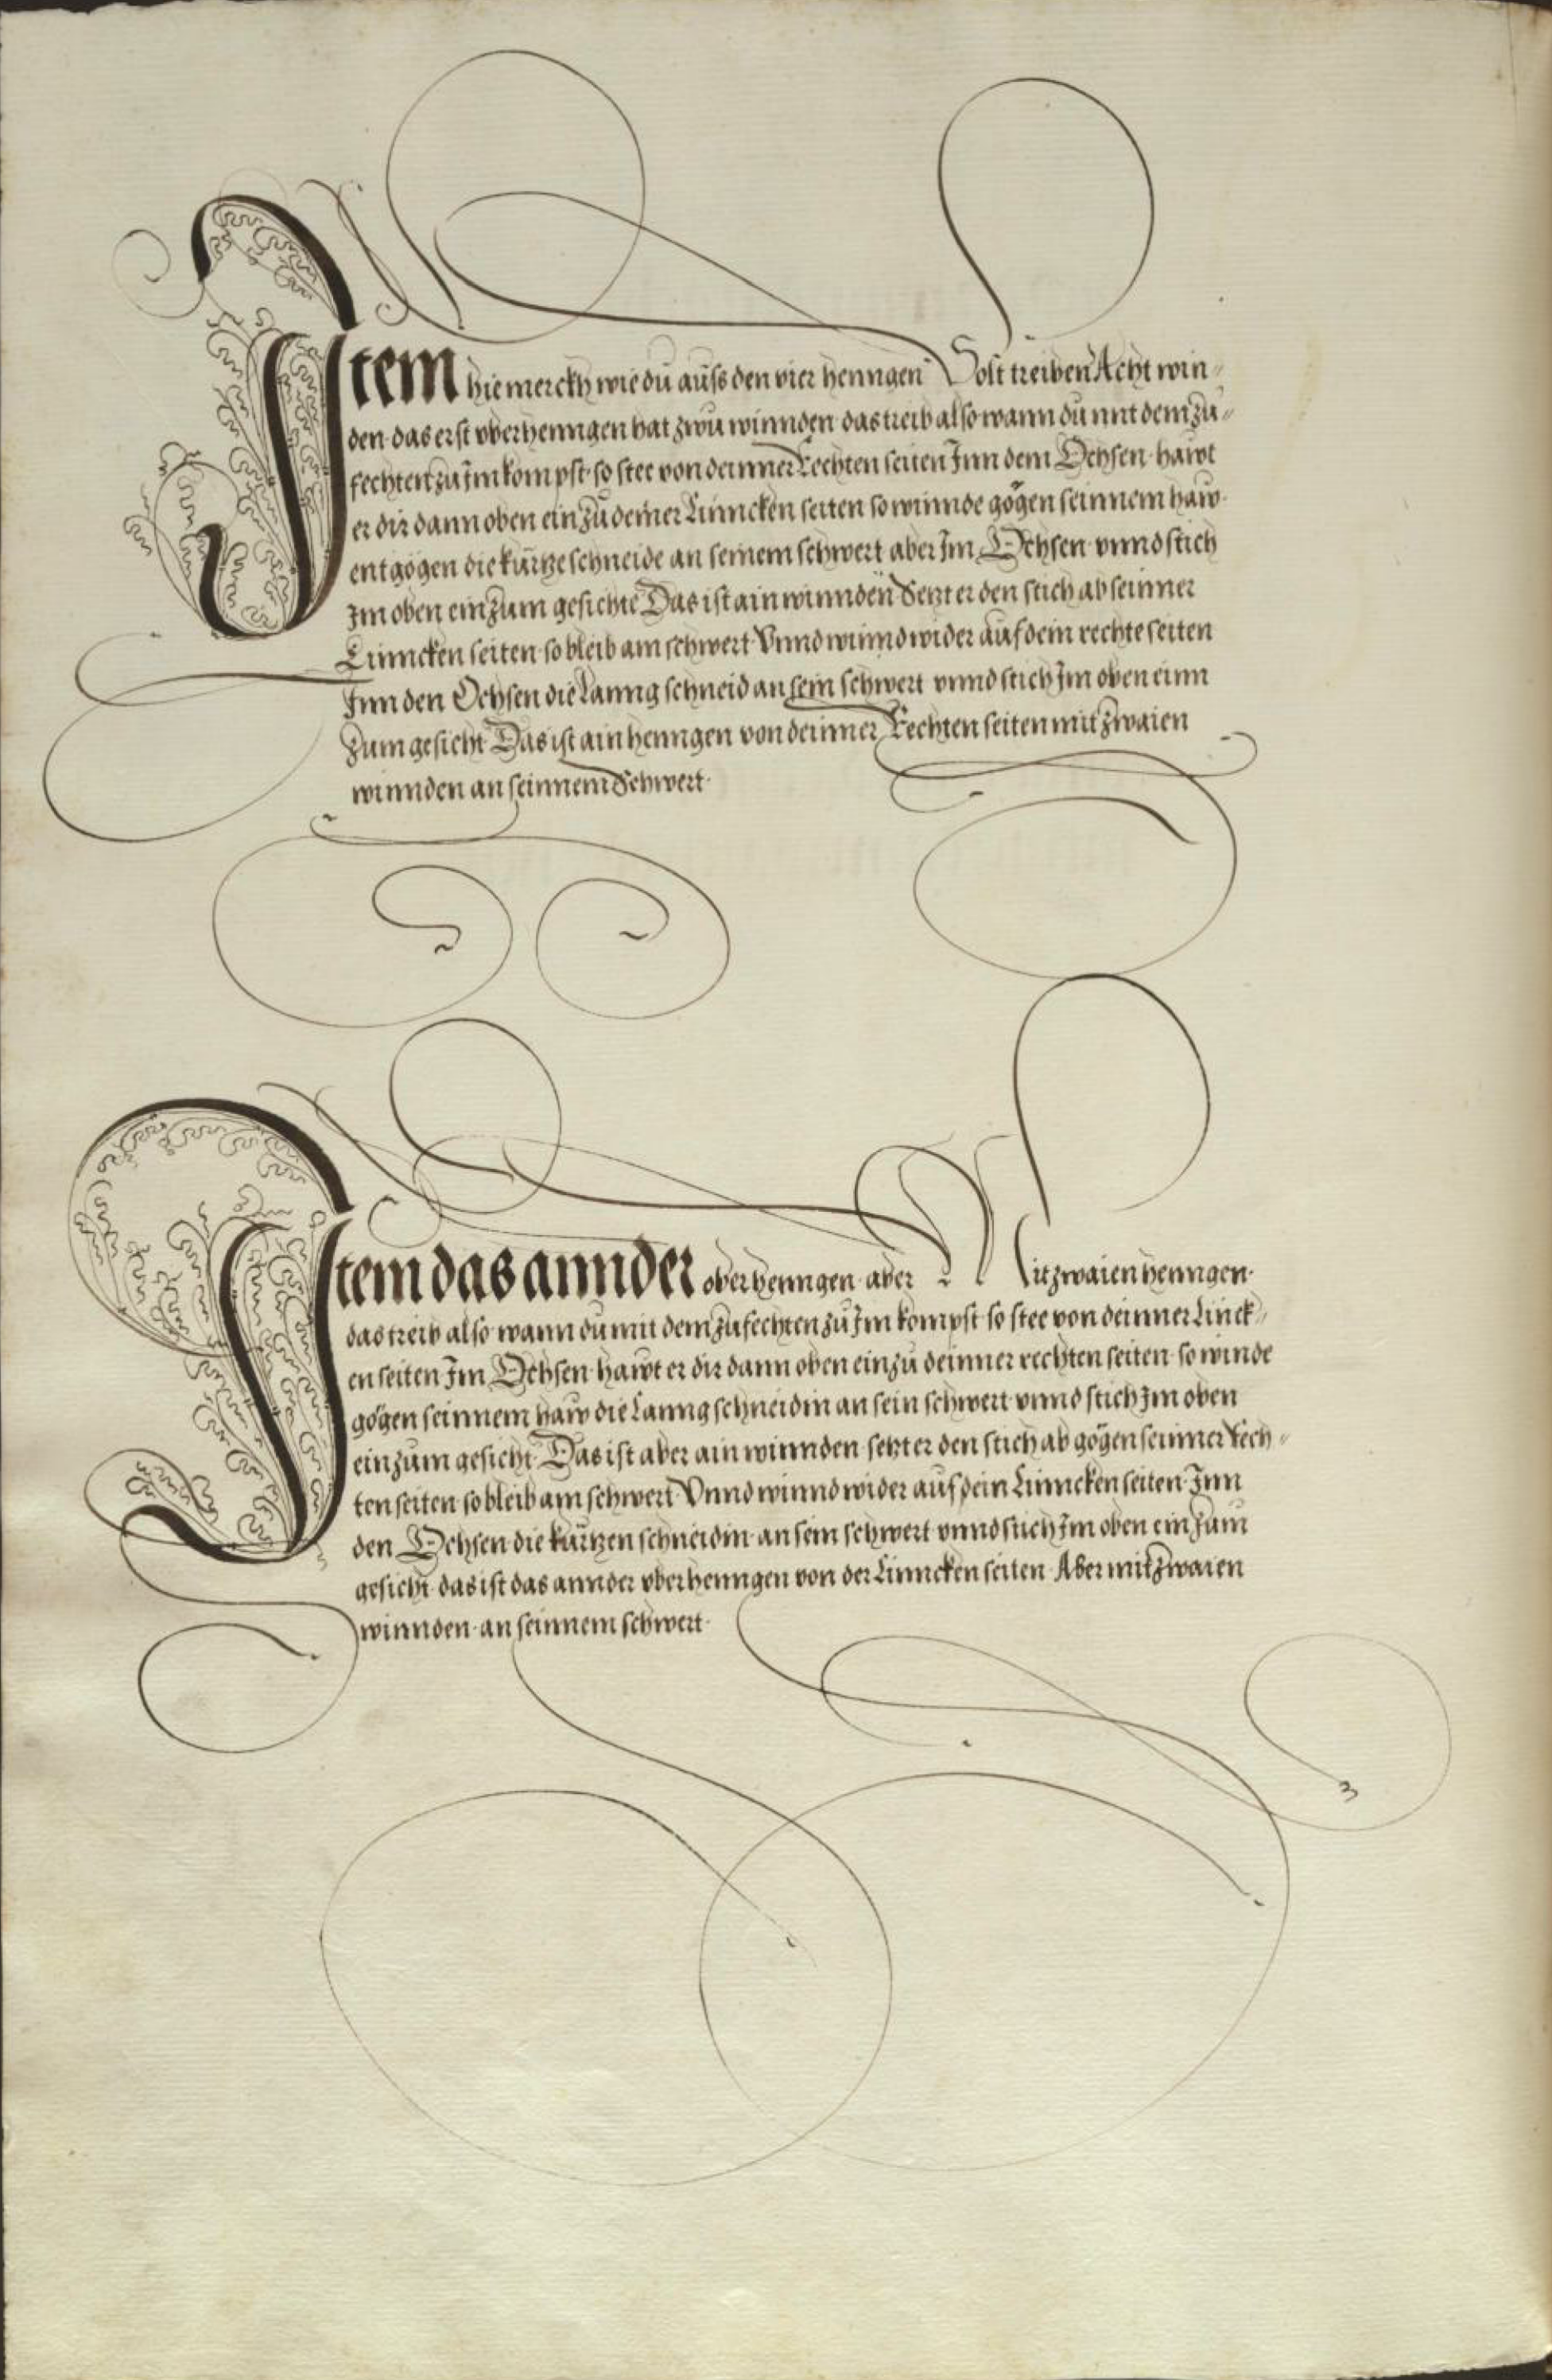 Item hie merckh wie du auss den vier henngen Solt treiben Acht win-
den das erst oberhenngen hat zwu winnden das treib also wann du mit dem zu-
fechten zu Im kompst so stee von deinner Rechten seiten Inn dem Ochsen hawt
er dir dann oben ein zu deiner Linncken seiten so winnde gögen seinnem haw
entgögen die kurtze schneide an seinem schwert aber Im Ochsen vnnd stich
Im oben ein zum gesichte Das ist ain winnden Setzt er den stich ab seinner
Linncken seiten so bleib am schwert Vnnd winnd wider auf dein rechte seiten
Inn den Ochsen die Lanng schneid an sein schwert vnnd stich Im oben einn
Zum gesicht Das ist ain henngen von deinner Rechten seiten mit zwaien
winnden an seinnem Schwert.
Item das annder oberhenngen aber Mit zwaien henngen.
das treib also wann du mit dem zufechten zu Im kompst so stee von deinner Linck-
en seiten Im Ochsen hawt er dir dann oben ein zu deinner rechten seiten so winde
gögen seinnem haw die Lanng schneidin an sein schwert vnnd stich Im oben
ein zum gesicht Das ist aber ain winnden setzt er den stich ab gögen seinner Rech-
ten seiten so bleib am schwert Vnnd winnd wider auf dein Linncken seiten Inn
den Ochsen die kurtzen schneidin an sein schwert vnnd stich Im oben ein zum
gesicht das ist das annder oberhenngen von der Linncken seiten Aber mit zwaien
winnden an seinnem schwert.